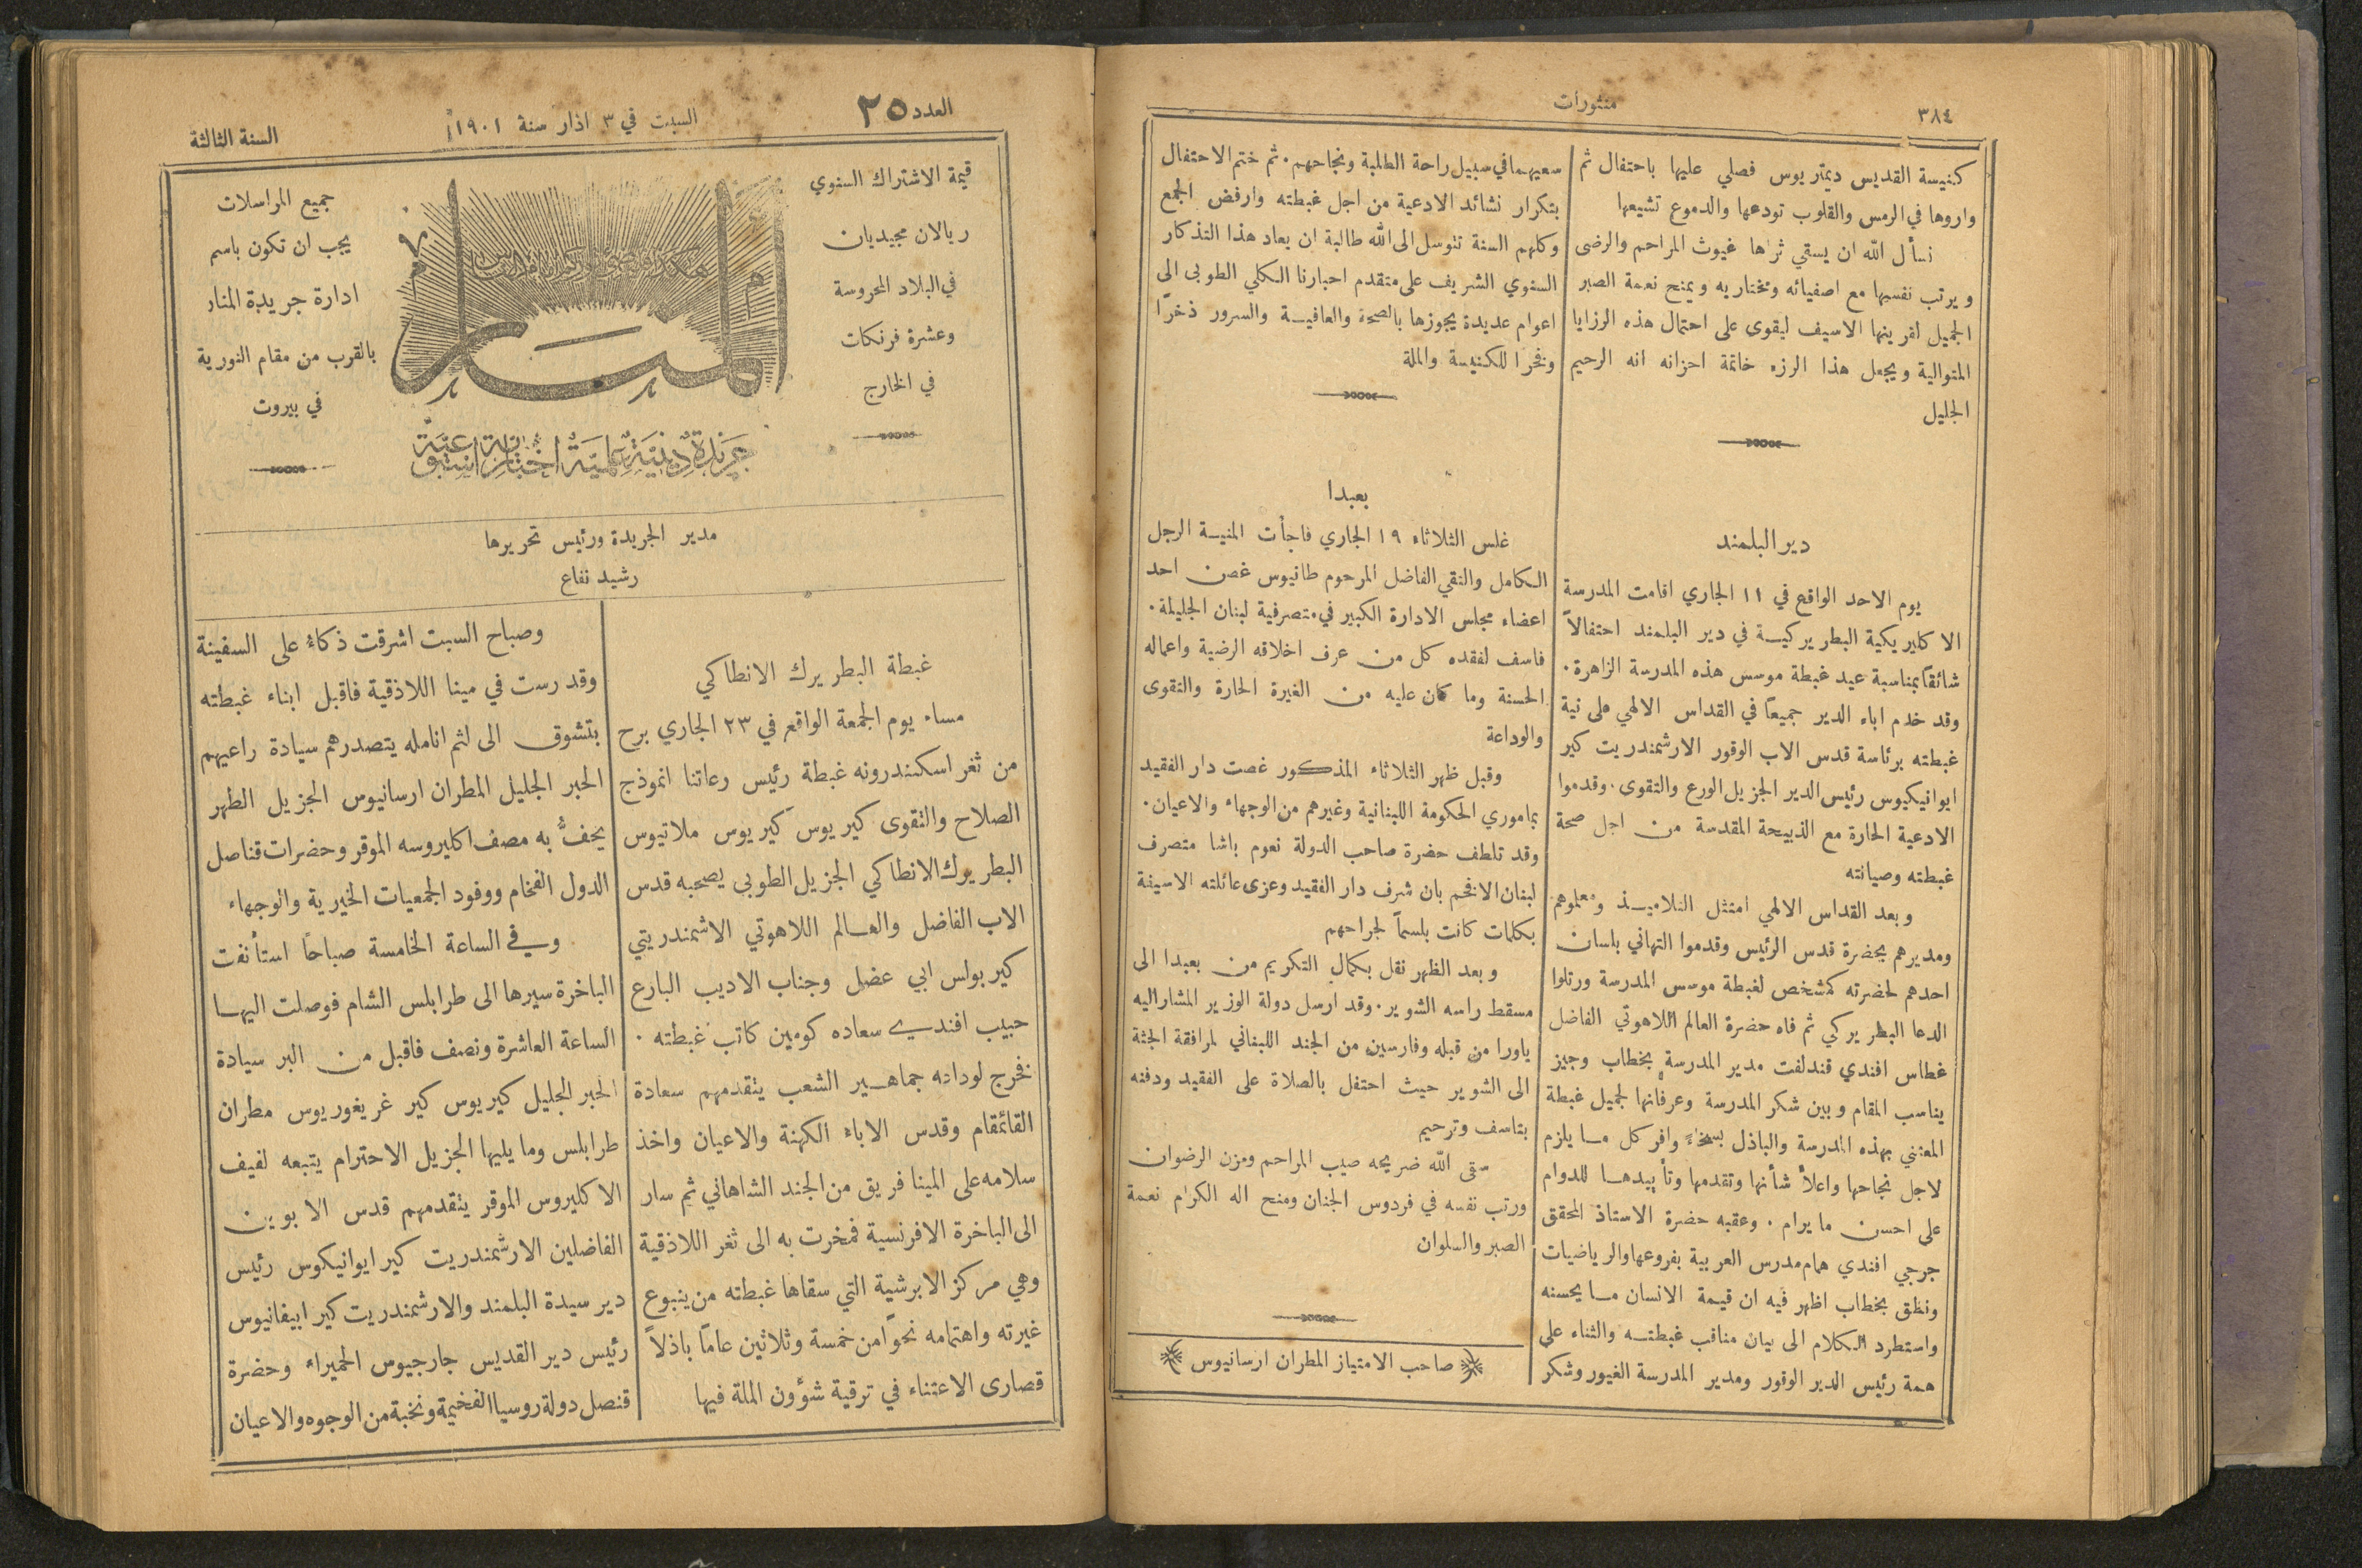 ٣٨٤
منثورات
كنيسة القديس ديمتريوس فصلي عليها باحتفال ثم
واروها في الرمس والقلوب تودعها والدموع تشيعها
نسأل الله ان يسقي ثراها غيوث المراحم والرضى
ويرتب نفسها مع اصفيائه ومختاريه ويمنح نعمة الصبر
الجميل لقرينها الاسيف ليقوى على احتمال هذه الرزايا
المتوالية ويجعل هذا الرزء خاتمة احزانه انه الرحيم
الجليل
دير البلمند
يوم الاحد الواقع في ١١ الجاري اقامت المدرسة
الاكليريكية البطريركية في دير البلمند احتفالاً
شائقاً بمناسبة عيد غبطة موسس هذه المدرسة الزاهرة.
وقد خدم اباء الدير جميعاً في القداس الالهي على نية
غبطته برئاسة قدس الاب الوقور الارشمندريت كير
ايوانيكيوس رئيس الدير الجزيل الورع والتقوى. وقدموا
الادعية الحارة مع الذبيحة المقدسة من اجل صحة
غبطته وصيانته
وبعد القداس الالهي امتثل التلاميذ ومعلموهم
ومديرهم بحضرة قدس الرئيس وقدموا التهاني بلسان
احدهم لحضرته كمشخص لغبطة موسس المدرسة ورتلوا
الدعا البطريركي ثم فاه حضرة العالم اللاهوتي الفاضل
غطاس افندي قندلفت مدير المدرسة بخطاب وجيز
يناسب المقام وبين شكر المدرسة وعرفانها لجميل غبطة
المعتني بهذه المدرسة والباذل بسخاءٍ وافر كل ما يلزم
لاجل نجاحها واعلاء شأنها وتقدمها وتأييدها للدوام
على احسن ما يرام. وعقبه حضرة الاستاذ المحقق
جرجي افندي همام مدرس العربية بفروعها والرياضيات
ونطق بخطاب اظهر فيه ان قيمة الانسان ما يحسنه
واستطرد الكلام الى بيان مناقب غبطته والثناء على
همة رئيس الدير الوقور ومدير المدرسة الغيور وشكر
سعيهما في سبيل راحة الطلبة ونجاحهم. ثم ختم الاحتفال
بتكرار نشائد الادعية من اجل غبطته وارفض الجمع
وكلهم السنة تتوسل الى الله طالبة ان يعاد هذا التذكار
السنوي الشريف على متقدم احبارنا الكلي الطوبى الى
اعوام عديدة يجوزها بالصحة والعافية والسرور ذخرًا
وفخرًا للكنيسة والملة
بعبدا
غلس الثلاثاء ١٩ الجاري فاجأت المنية الرجل
الكامل والتقي الفاضل المرحوم طانيوس غصن احد
اعضاء مجلس الادارة الكبير في متصرفية لبنان الجليلة.
فاسف لفقده كل من عرف اخلاقه الرضية واعماله
الحسنة وما كان عليه من الغيرة الحارة والتقوى
والوداعة
وقبل ظهر الثلاثاء المذكور غصت دار الفقيد
بماموري الحكومة اللبنانية وغيرهم من الوجهاء والاعيان.
وقد تلطف حضرة صاحب الدولة نعوم باشا متصرف
لبنان الافخم بان شرف دار الفقيد وعزى عائلته الاسيفة
بكلمات كانت بلسماً لجراحهم
وبعد الظهر نقل بكمال التكريم من بعبدا الى
مسقط راسه الشوير. وقد ارسل دولة الوزير المشار اليه
ياورا من قبله وفارسين من الجند اللبناني لمرافقة الجثة
الى الشوير حيث احتفل بالصلاة على الفقيد ودفنه
بتاسف وترحيم
سقى الله ضريحه صيب المراحم ومزن الرضوان
ورتب نفسه في فردوس الجنان ومنح اله الكرام نعمة
الصبر والسلوان
صاحب الامتياز المطران ارسانيوس
العدد ٢٥
السبت في ٣ اذار سنة ١٩٠١
السنة الثالثة
قيمة الاشتراك السنوي
ريالان مجيديان
في البلاد المحروسة
وعشرة فرنكات
في الخارج
المنار
جريدة دينية علمية اخبارية اسبوعية
جميع المراسلات
يجب ان تكون باسم
ادارة جريدة المنار
بالقرب من مقام النورية
في بيروت
مدير الجريدة ورئيس تحريرها
رشيد نفاع
غبطة البطريرك الانطاكي
مساء يوم الجمعة الواقع في ٢٣ الجاري برح
من ثغر اسكندرونه غبطة رئيس رعاتنا انموذج
الصلاح والتقوى كيريوس كيريوس ملاتيوس
البطريرك الانطاكي الجزيل الطوبى يصحبه قدس
الاب الفاضل والعالم اللاهوتي الاشمندريتي
كير بولس ابي عضل وجناب الاديب البارع
حبيب افندي سعاده كومين كاتب غبطته.
فخرج لوداعه جماهير الشعب يتقدمهم سعادة
القائمقام وقدس الاباء الكهنة والاعيان واخذ
سلامه على المينا فريق من الجند الشاهاني ثم سار
الى الباخرة الافرنسية فمخرت به الى ثغر اللاذقية
وهي مركز الابرشية التي سقاها غبطته من ينبوع
غيرته واهتمامه نحوًا من خمسة وثلاثين عامًا باذلاً
قصارى الاعتناء في ترقية شؤون الملة فيها
وصباح السبت اشرقت ذكاءُ على السفينة
وقد رست في مينا اللاذقية فاقبل ابناء غبطته
بتشوق الى لثم انامله يتصدرهم سيادة راعيهم
الحبر الجليل المطران ارسانيوس الجزيل الطهر
يحفُّ به مصف اكليروسه الموقر وحضرات قناصل
الدول الفخام ووفود الجمعيات الخيرية والوجهاء
وفي الساعة الخامسة صباحًا استأنفت
الباخرة سيرها الى طرابلس الشام فوصلت اليها
الساعة العاشرة ونصف فاقبل من البر سيادة
الحبر الجليل كيريوس كير غريغوريوس مطران
طرابلس وما يليها الجزيل الاحترام يتبعه لفيف
الاكليروس الموقر يتقدمهم قدس الابوين
الفاضلين الارشمندريت كير ايوانيكوس رئيس
دير سيدة البلمند والارشمندريت كير ابيفانيوس
رئيس دير القديس جارجيوس الحميراء وحضرة
قنصل دولة روسيا الفخيمة ونخبة من الوجوه والاعيان